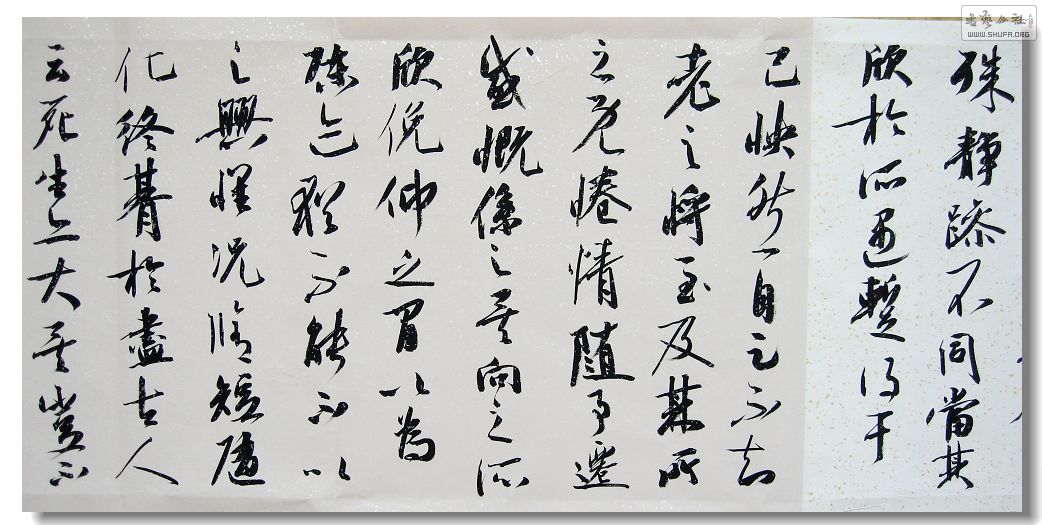 殊靜躁不同當其
欣於所遇暫得于
己怏然自足不知
老之將至及其所
之既倦情隨事遷
感慨係之矣向之所
欣俛仰之間以為
陳迹猶不能不以
之興懷況脩短隨
化終朞於盡古人
云死生亦大矣豈不
书艺公社
WWW.SHUFA.ORG